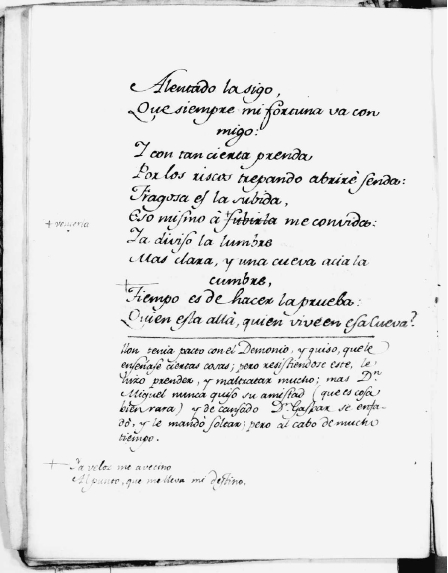 Alentado la sigo,
Que siempre mi fortuna va con
migo:
Y con tan cierta prenda
Por los riscos trepando abrirè senda:
Fragosa es la subida,
Eso mismo à subirla me convida:
+ venceria
Ya diviso la lumbre
Mas clara, y una cueva acia la
cumbre,
Tiempo es de hacer la prueba:
Quien esta allà, quien vive en esa Cueva?
tenia pacto con el Demonio, y quiso, que le
enseñase ciertas cosas; pero resistiendose este, le
hizo prender, y maltratar mucho; mas Dn
Miguel nunca quiso su amistad (que es cosa
bien rara) y de cansado Dn Gaspar se enfa-
dò, y le mandò soltar: pero al cabo de mucho
tiempo.
+ Ya veloz me avecino
Al punto, que me lleva mi destino.